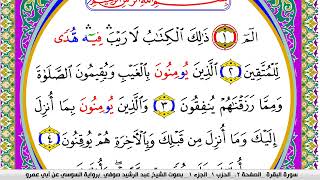 الٓمٓ ١ ذَٰلِكَ ٱلْكِتَٰبُ لَا رَيْبَ فِيهِ هُدًى
لِّلْمُتَّقِينَ ٢ ٱلَّذِينَ يُومِنُونَ بِٱلْغَيْبِ وَيُقِيمُونَ ٱلصَّلَوٰةَ
وَمِمَّا رَزَقْنَٰهُمْ يُنفِقُونَ ٣ وَٱلَّذِينَ يُومِنُونَ بِمَا أُنزِلَ
إِلَيْكَ وَمَا أُنزِلَ مِن قَبْلِكَ وَبِٱلْأٓخِرَةِ هُمْ يُوقِنُونَ ٤
سورة البقرة الصفحة ٢ الحزب ١ الجزء ١ بصوت الشيخ عبد الرشيد صوفي برواية السوسي عن أبي عمرو